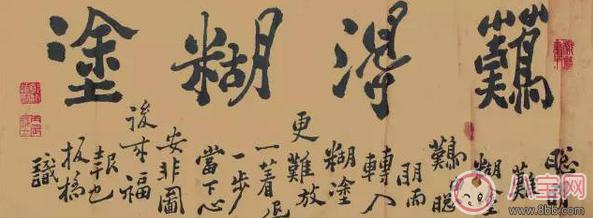 難得糊塗
聰明
難
糊塗
難聰
明而
轉入
糊塗
更難放
一着退
一步
當下心
安非圖
後来福
報也
板橋
識
八宝网
www.8bb.com